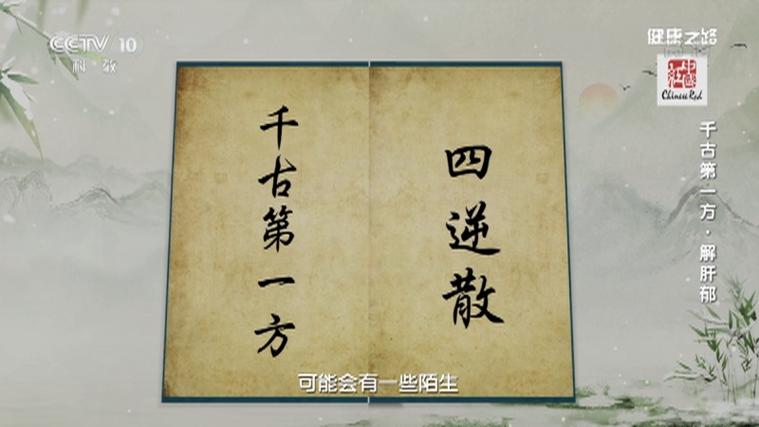 CCTV 10
科·教
健康之路
中国红
Chinese Red
千古第一方·解肝郁
四逆散
千古第一方
可能会有一些陌生